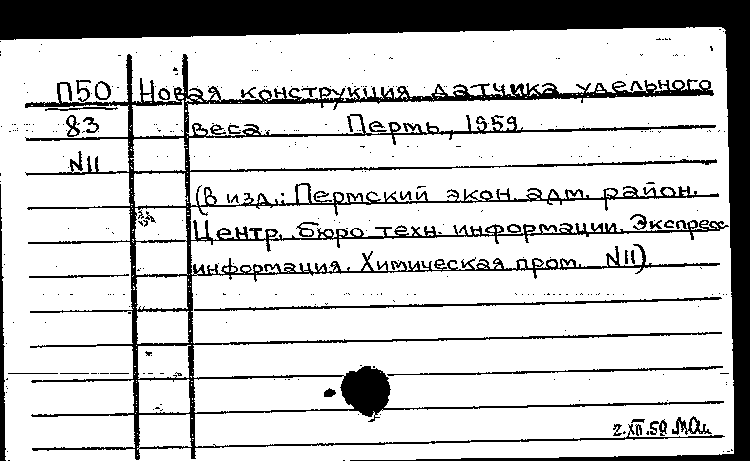 П50 Новая конструкция датчика удельного
83 веса. Пермь, 1959.
N11
(В изд.: Пермский экон. адм. район.
Центр. бюро техн. информации. Экспресс
информация. Химическая пром. N11).
2.XII.59